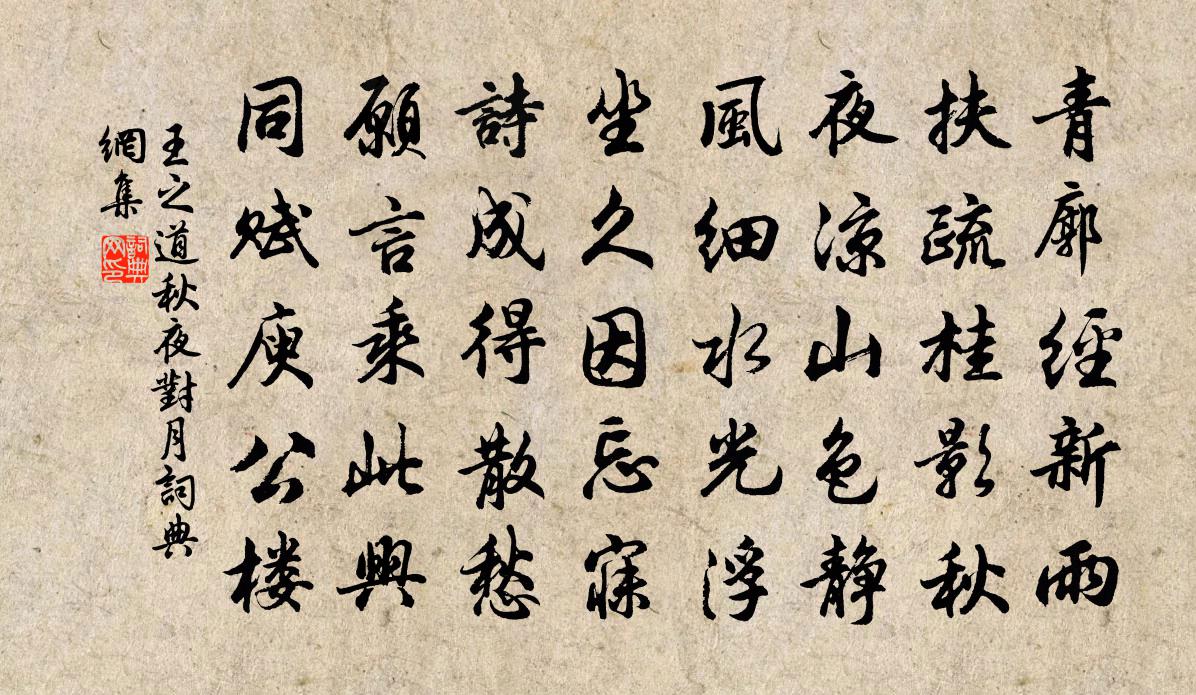 青廓經新雨
扶疏桂影秋
夜涼山色静
風細水光浮
坐久因忘寐
詩成得散愁
願言乘此興
同赋庾公楼
王之道秋夜對月詞典
網集
詞典
网印